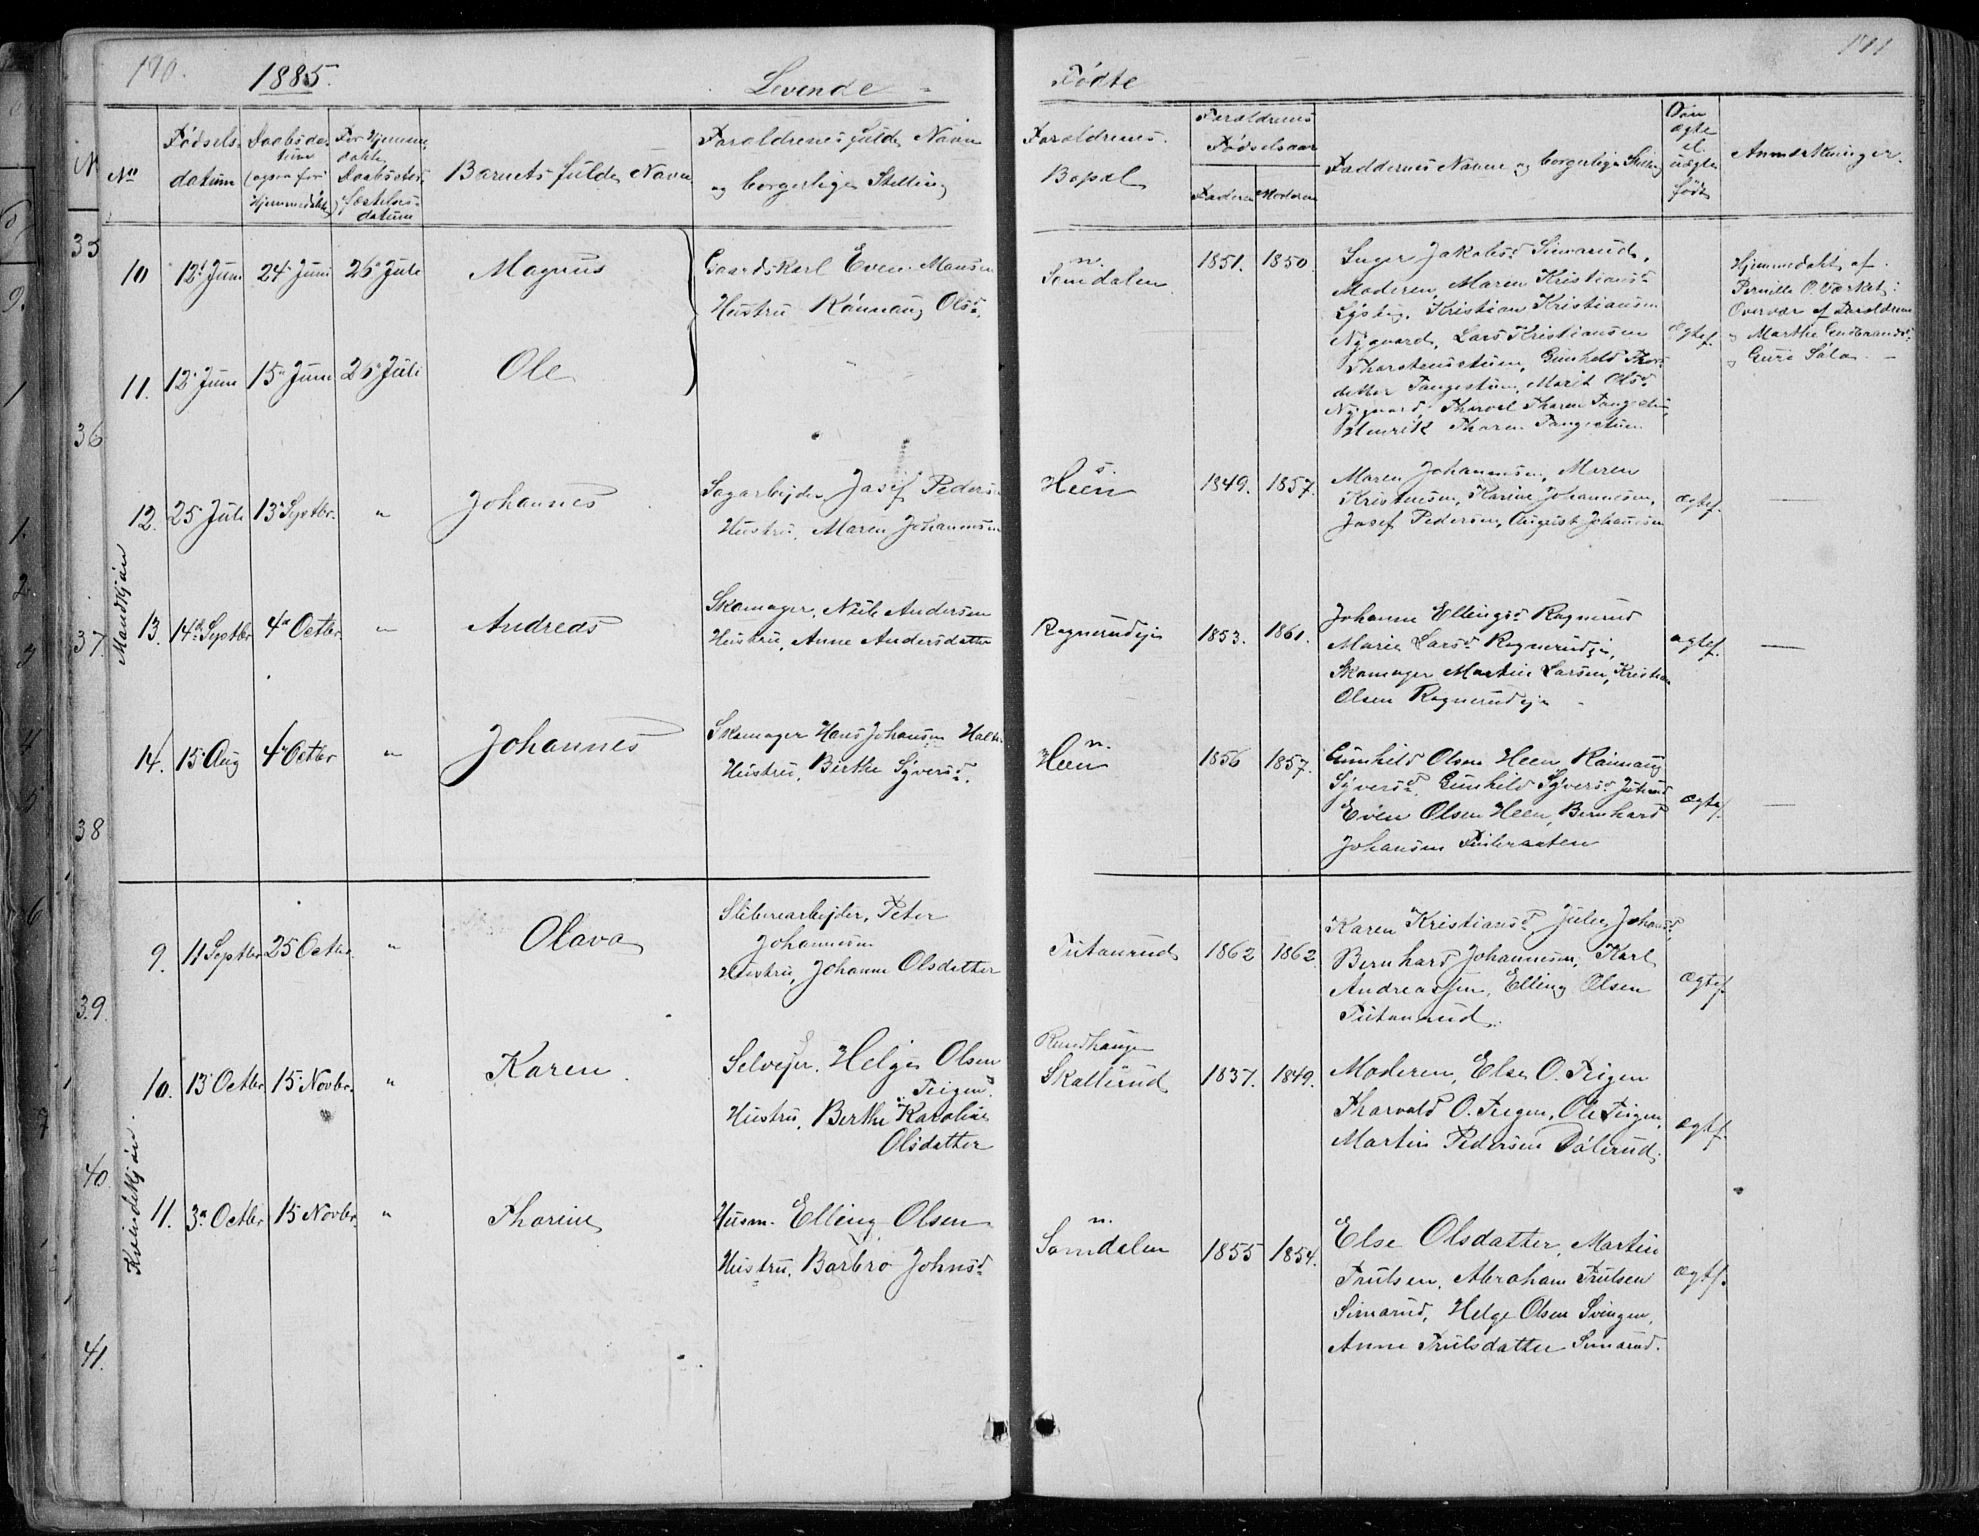 190.
1885.
Levende
Fødte
191
No
Fødsels-
datum
Daabsda-
tum
(ogsaa for
Hjemmedøbte)
For Hjemme-
døbte,
Daabsstad-
fæstelses-
datum
Barnets fulde Navn
Forældrenes fulde Navn
og borgerlige Stilling
Forældrenes
Bopæl
Forældrenes
Fødselsaar
Faderen Moderen
Faddernes Navne og borgerlige Stilling
Om
ægte
el.
uægte
født
Anmærkninger.
Mandkjøn
10
12' Juni
24' Juni
26' Juli
Magnus
Gaardskarl Even Monsen
Hustru Rønnaug Olsd.
n.
Somdalen
1851.
1850
Inger Jakobsd. Simarud,
Moderen, Maren Kristiansd
Kristian Kristiansen
Nygaard, Lars Kristiansen
Thorstenstuen, Gunhild Thors-
datter Tangestuen, Marit Olsd
Nygaard, Thorvel Thoren Tangestu
Henrik Thoren Tangestuen
ægtef.
Hjemmedøbt af
Pernille O. Værket i
Overvær af Forældrene
og Marthe Gulbrandsd.
og Guri Søla. —
11.
12' Juni
15' Juni
26' Juli
Ole
12.
25 Juli
13' Septbr.
"
Johannes
Sagarbejder Josef Pedersen
Hustru, Maren Johannsen
s.
Heen
1849.
1857.
Maren Johannesen, Maren
Kristensen, Karine Johannesen,
Josef Pedersen, August Johansen
ægtef.
—
13.
14de Septbr
4' Octbr.
"
Andreas
Skomager, Nils Andersen
Hustru, Anne Andersdatter
Ragnerudeje
1853.
1861.
Johanne Ellingsd Ragnerud
Marie Larsd Ragnerudeje,
Skomager Martin Larsen, Kristian
Olsen Ragnerudeje
ægtef.
—
14.
15' Aug
4' Octbr
"
Johannes
Skomager Hans Johansen
Hustru, Berthe Syversd.
n.
Heen
1856
1857.
Gunhild Olsen Heen, Rønnaug
Syversd. Gunhild Syversd
Even Olsen Heen, Bernhard
Johansen
ægtef.
—
Kvindekjøn.
9.
11 Septbr
25 Octbr.
"
Olava
Sliberiarbejder, Peter
Johannesen
Hustru, Johanne Olsdatter
Tutanrud
1862
1862.
Karen Kristiansd, Julie Johansd,
Bernhard Johannesen, Karl
Andreassen, Elling Olsen
Tutanrud.
ægtef.
10.
13' Octbr.
15 Novbr.
"
Karen
Selvejer. Helge Olsen
Teigen.
Hustru, Berthe Karoline
Olsdatter
Rundhaugen
Skollerud
1837.
1849.
Moderen, Else O. Teigen
Thorvald O. Teigen, Ole Teigen,
Martin Pedersen Dølerud.
ægtf.
11.
3' Octbr
15 Novbr.
"
Thorine
Husm. Elling Olsen
Hustru, Barbro Johnsd.
n.
Somdalen
1855
1854.
Else Olsdatter, Martin
Trulsen, Abraham Trulsen
Simarud, Helge Olsen Svingen,
Anne Trulsdatter Simarud.
ægtf.
35
36
37.
38
39.
40.
41.